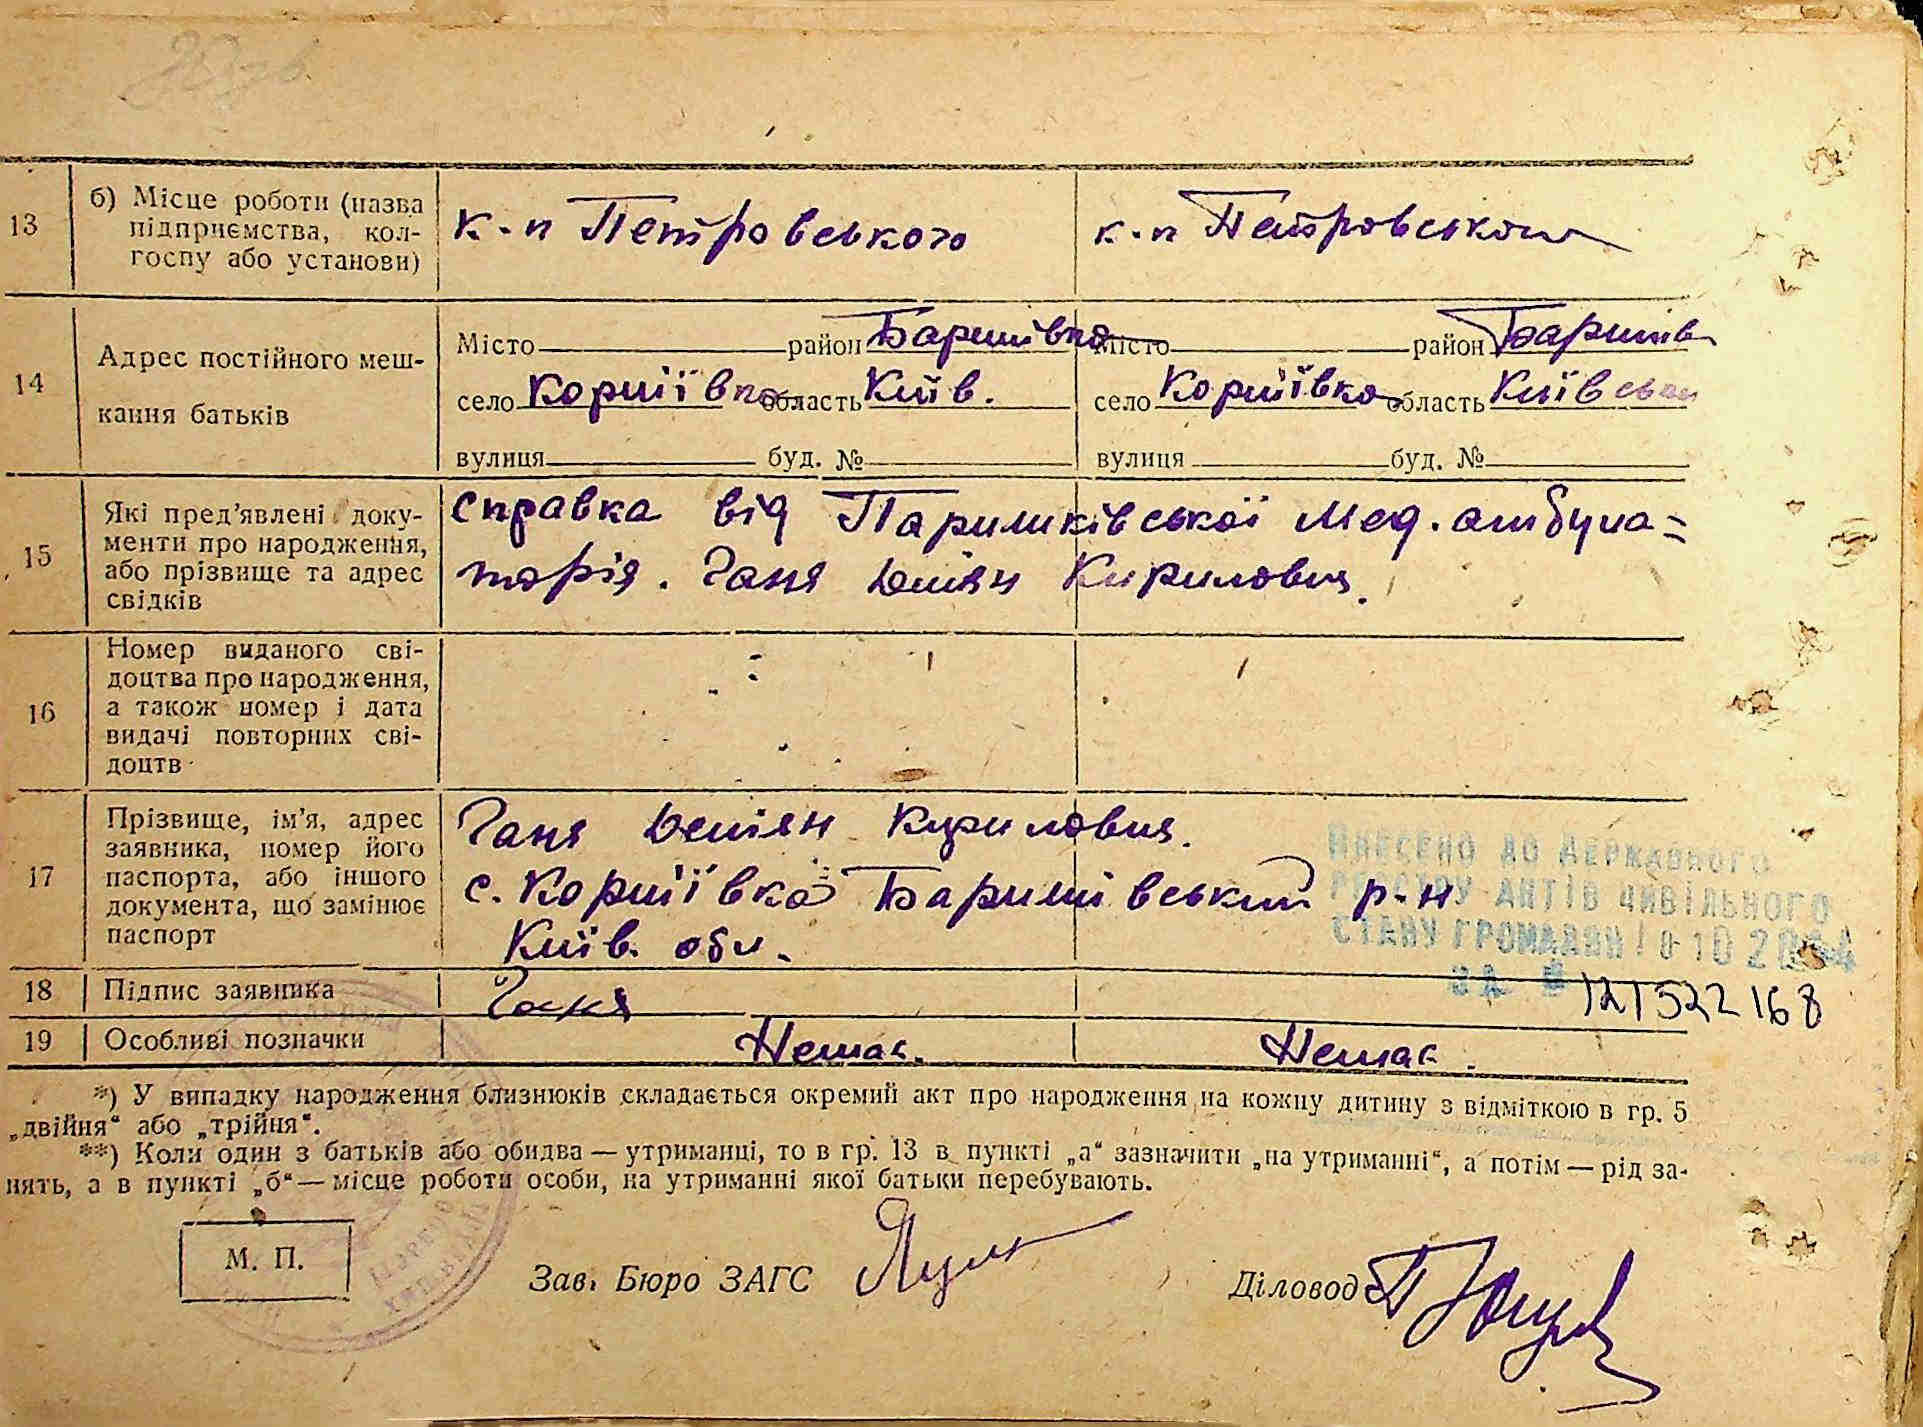 13
б) Місце роботи (назва
підприємства, кол-
госпу або установи)
к-п Петровського
к-п Петровського
14
Адрес постійного меш-
кання батьків
Місто район Баришівка
село Коржіївка область Київ.
вулиця буд. №
Місто район Баришів
село Коржіївка область Київськ
вулиця буд. №
15
Які пред’явлені доку-
менти про народження,
або прізвище та адрес
свідків
справка від Паришківської Мед. амбула=
торія. Ганя Демян Кирилович.
16
Номер виданого сві-
доцтва про народження,
а також номер і дата
видачі повторних сві-
доцтв
17
Прізвище, ім’я, адрес
заявника, номер його
паспорта, або іншого
документа, що замінює
паспорт
Ганя Демян Кирилович.
с. Коржіївка Баришівський р-н
Київ. обл.
ВНЕСЕНО ДО ДЕРЖАВНОГО
РЕЄСТРУ АКТІВ ЦИВІЛЬНОГО
СТАНУ ГРОМАДЯН 10 20
ЗА № 121522168
18
Підпис заявника
Ганя
19
Особливі позначки
Немає.
Немає.
*) У випадку народження близнюків складається окремий акт про народження на кожну дитину з відміткою в гр. 5
„двійня“ або „трійня“.
**) Коли один з батьків або обидва — утриманці, то в гр. 13 в пункті „а“ зазначити „на утриманні“, а потім — рід за-
нять, а в пункті „б“ — місце роботи особи, на утриманні якої батьки перебувають.
М. П.
Зав. Бюро ЗАГС
Діловод